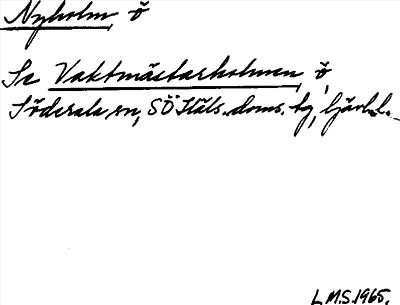 Nyholm, ö
Se Vaktmästarholmen, ö,
Söderala sn, SÖ Häls. doms. tg, Gävl.l.
L.M.S. 1965.